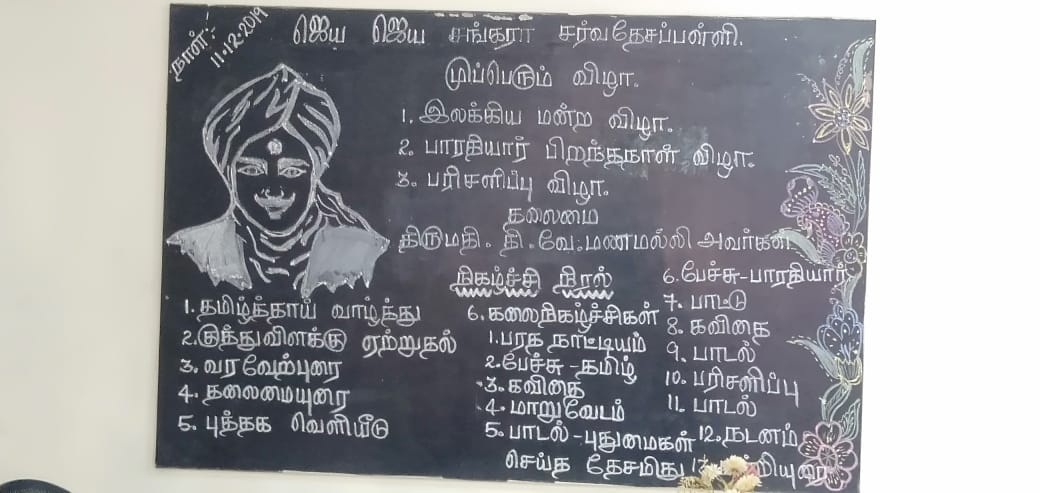 நாள்:-
11.12.2019
ஜெய ஜெய சங்கரா சர்வதேசப்பள்ளி.
முப்பெரும் விழா.
1. இலக்கிய மன்ற விழா.
2. பாரதியார் பிறந்தநாள் விழா.
3. பரிசளிப்பு விழா.
தலைமை
திருமதி. தி.வே.மணமல்லி அவர்கள்
நிகழ்ச்சி நிரல்
1. தமிழ்த்தாய் வாழ்த்து
2. குத்துவிளக்கு ஏற்றுதல்
3. வரவேற்புரை
4. தலைமையுரை
5. புத்தக வெளியீடு
6. கலைநிகழ்ச்சிகள்
1. பரத நாட்டியம்
2. பேச்சு - தமிழ்
3. கவிதை
4. மாறுவேடம்
5. பாடல் - புதுமைகள்
செய்த தேசமிது
6. பேச்சு - பாரதியார்
7. பாட்டு
8. கவிதை
9. பாடல்
10. பரிசளிப்பு
11. பாடல்
12. நடனம்